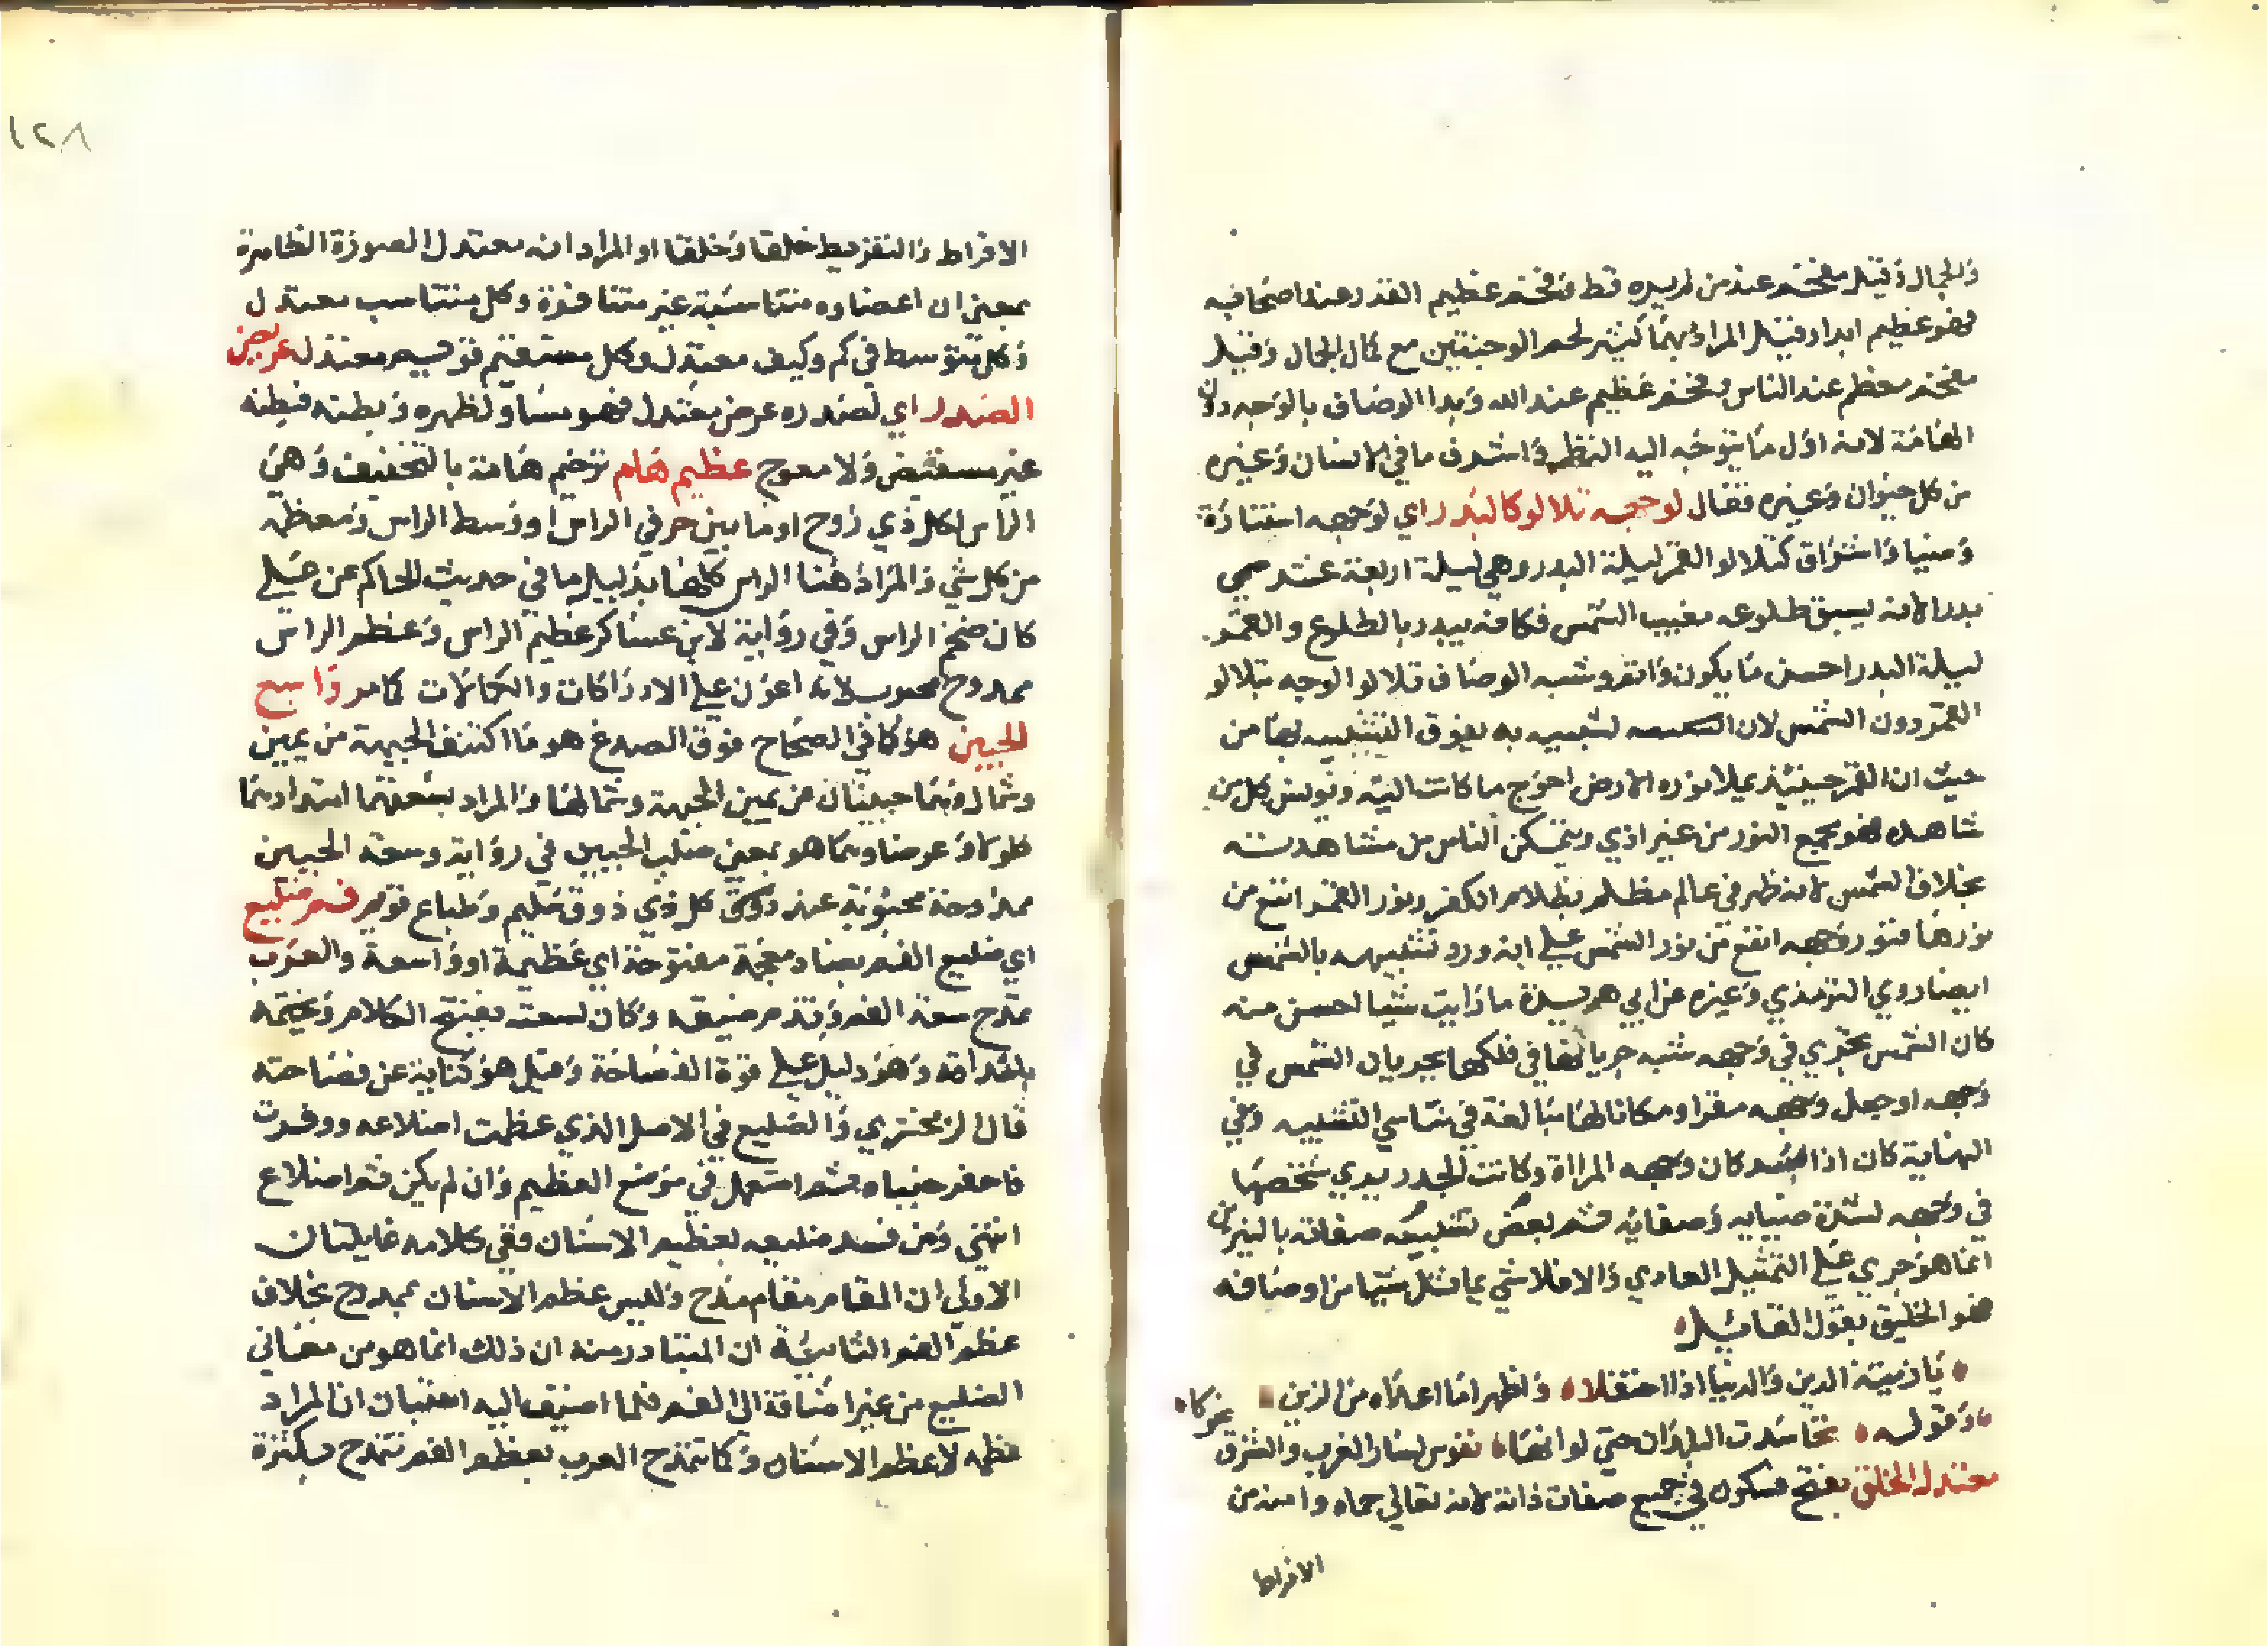 والجمال وقيل مفخم عند من لم يره قط مفخم عظيم القدر عند اصحابه
فهو عظيم ابدا وقيل المراد بهما كثير لحم الوجنتين مع كمال الجمال وقيل
مفخم معظم عند الناس ومفخم عظيم عند الله وبدا الوصاف بالوجه دون
الهامة لانه اول ما يتوجه اليه النظر واشرف ما في الانسان وغيره
من كل حيوان وغيره فقال لوجهه تلالو كالبدر اي لوجهه استنارة
وضيا واشراق كتلالو القمر ليلة البدر وهي ليلة اربعة عشر سمي
بدرا لانه يسبق طلوعه مغيب الشمس فكانه يبدر بالطلوع والقمر
ليلة البدر احسن ما يكون واتم وشبه الوصاف تلالو الوجه بتلالو
القمر دون الشمس لان التشبيه به يفوق التشبيه بها من
حيث ان القمر حينئذ يملا نوره الارض احوج ما كانت اليه ويونس كل من
شاهده فهو مجمع النور من غير اذي ويتمكن الناس من مشاهدته
بخلاف الشمس لانه ظهر في عالم مظلم بظلام الكفر ونور القمر انفع من
نورها فنور وجهه انفع من نور الشمس علي انه ورد تشبيهه بالشمس
ايضا روي الترمذي وغيره عن ابي هريرة ما رايت شيا احسن منه
كان الشمس تجري في وجهه شبه جريانها في فلكها بجريان الشمس في
وجهه او جعل وجهه مقرا ومكانا لها مبالغة في تناسي التشبيه وفي
النهاية كان اذا سر كان وجهه المراة وكانت الجدر يري شخصها
في وجهه لشدة ضيايه وصفائه ثم بعض تشبيه صفاته بالنيرين
انما هو جري علي التمثيل العادي والا فلا شي يماثل شيا من اوصافه
فهو الخليق بقول القائل
يا زينة الدين والدنيا اذا احتفلا واظهرا ما اعداه من الزين نحو كا
وقوله تحاسدت البلدان حتي لو انها نفوس لسار الغرب والشرق
معتدل الخلق بفتح فسكون في جميع صفات ذاته لانه تعالي حماه وامنه من
الافراط
١٢٨
الافراط والتفريط خلقا وخلقا او المراد انه معتدل الصورة الظاهرة
بمعني ان اعضاوه متناسبة غير متنافرة وكل متناسب معتدل
وكل متوسط في كم وكيف معتدل وكل مستقيم قويم معتدل عريض
الصدر اي لصدره عرض معتدل فهو مساو لظهره وبطنه فبطنه
غير مستفيض ولا معوج عظيم هام ترخيم هامة بالتخفيف وهي
الراس لكل ذي روح او ما بين حرفي الراس او وسط الراس ومعظمه
من كل شي والمراد هنا الراس كلها بدليل ما في حديث الحاكم عن علي
كان ضخم الراس وفي رواية لابن عساكر عظيم الراس وعظم الراس
ممدوح محبوب لانه اعون علي الادراكات والكمالات كما مر واسع
الجبين هو كما في الصحاح فوق الصدغ هو ما اكتنف الجبهة من يمين
وشمال وهما جبينان من يمين الجبهة وشمالها والمراد بسعتهما امتدادهما
طولا وعرضا وهما هو بمعني صلت الجبين في رواية وسعة الجبين
ممدوحة محبوبة عند كل ذي ذوق سليم وطباع قويم ضليع
اي ضليع الفم بضاد معجمة مفتوحة اي عظيمة او واسعة والعرب
تمدح سعة الفم وتذم ضيقه وكان لسعته يفتح الكلام ويختمه
باشداقه وهو دليل علي قوة الفصاحة وقيل هو كناية عن فصاحته
قال الزمخشري والضليع في الاصل الذي عظمت اضلاعه ووفرت
فاجفر جنباه ثم استعمل في موضع العظيم وان لم يكن ثم اضلاع
انتهي ومن فسر ضليعه بعظيم الاسنان ففي كلامه غايلتان
الاولي ان المقام مقام مدح وليس عظم الاسنان بممدوح بخلاف
عظم الفم الثانية ان المتبادر منه ان ذلك انما هو من معاني
الضليع من غير اضافة الي الفم فلما اضيف اليه استبان ان المراد
عظمه لا عظم الاسنان وكما تمدح العرب بعظم الفم تتمدح بكثرة